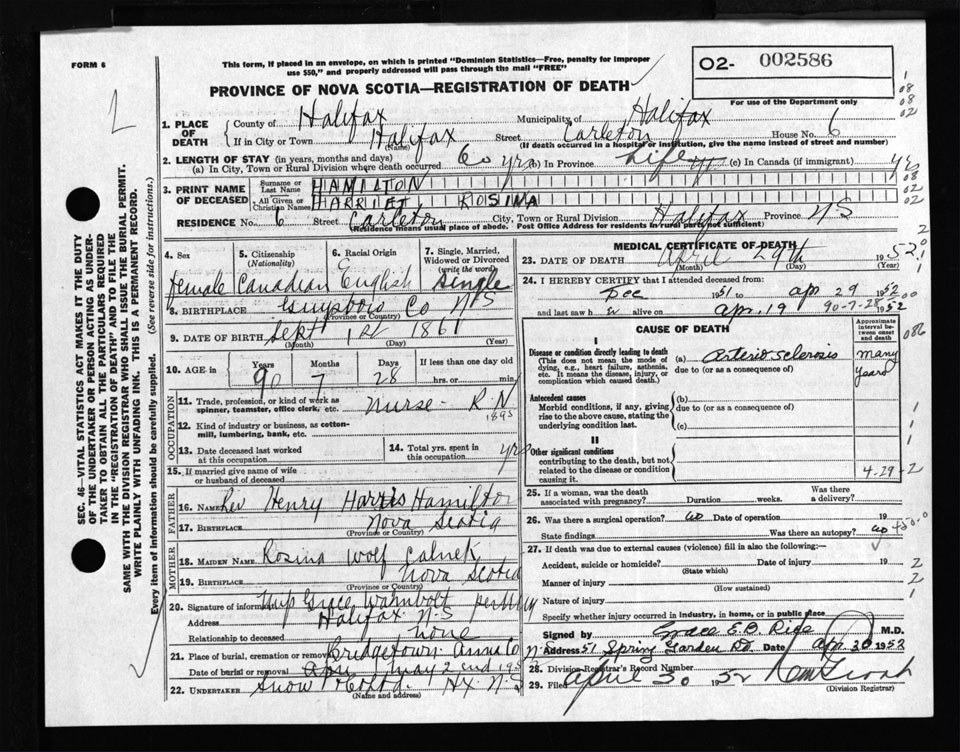 FORM 6
This form, if placed in an envelope, on which is printed "Dominion Statistics—Free, penalty for improper
use $50," and properly addressed will pass through the mail "FREE"
O2- 002586
PROVINCE OF NOVA SCOTIA—REGISTRATION OF DEATH
For use of the Department only
1. PLACE OF DEATH
County of Halifax Municipality of Halifax
If in City or Town Halifax Street Carleton House No. 6
(Name) (If death occurred in a hospital or institution, give the name instead of street and number)
2. LENGTH OF STAY (in years, months and days)
(a) In City, Town or Rural Division where death occurred 60 yrs (b) In Province Life (c) In Canada (if immigrant)
3. PRINT NAME OF DECEASED
Surname or Last Name HAMILTON
All Given or Christian Names HARRIET ROSINA
RESIDENCE No. 6 Street Carleton City, Town or Rural Division Halifax Province NS
(Residence means usual place of abode. Post Office Address for residents in rural parts not sufficient)
4. Sex female
5. Citizenship (Nationality) Canadian
6. Racial Origin English
7. Single, Married, Widowed or Divorced (write the word) Single
8. BIRTHPLACE Guysboro Co N S
(Province or Country)
9. DATE OF BIRTH Sept 1st 1861
(Month) (Day) (Year)
10. AGE in Years 90 Months 7 Days 28 If less than one day old hrs. or min.
OCCUPATION
11. Trade, profession, or kind of work as spinner, teamster, office clerk, etc. Nurse - R.N
1895
12. Kind of industry or business, as cotton-mill, lumbering, bank, etc.
13. Date deceased last worked at this occupation
14. Total yrs. spent in this occupation yrs
15. If married give name of wife or husband of deceased
FATHER
16. NAME Rev Henry Harris Hamilton
17. BIRTHPLACE Nova Scotia
(Province or Country)
MOTHER
18. MAIDEN NAME Rosina Wolf Calnek
19. BIRTHPLACE Nova Scotia
(Province or Country)
20. Signature of informant Miss Grace
Address Halifax N.S
Relationship to deceased none
21. Place of burial, cremation or removal Bridgetown Anna Co
Date of burial or removal May 2nd 195
22. UNDERTAKER Snow & Co Ltd. Hx N-S
(Name and address)
MEDICAL CERTIFICATE OF DEATH
23. DATE OF DEATH April 29th 1952
(Month) (Day) (Year)
24. I HEREBY CERTIFY that I attended deceased from:
Dec 1951 to apr 29 1952
and last saw h er alive on apr. 19 90-7-28 1952
CAUSE OF DEATH
Approximate interval between onset and death
I
Disease or condition directly leading to death (a) arterio sclerosis many years
(This does not mean the mode of dying, e.g., heart failure, asthenia, etc. It means the disease, injury, or complication which caused death.)
due to (or as a consequence of)
Antecedent causes (b)
Morbid conditions, if any, giving rise to the above cause, stating the underlying condition last.
due to (or as a consequence of)
(c)
II
Other significant conditions
contributing to the death, but not related to the disease or condition causing it.
4-29-2
25. If a woman, was the death associated with pregnancy? Duration weeks. Was there a delivery?
26. Was there a surgical operation? no Date of operation 19
State findings Was there an autopsy? no
27. If death was due to external causes (violence) fill in also the following:—
Accident, suicide or homicide? Date of injury 19
(State which)
Manner of injury
(How sustained)
Nature of injury
Specify whether injury occurred in industry, in home, or in public place
Signed by Grace E.B. Rice M.D.
Address 51 Spring Garden Rd. Date apr. 30 1952
28. Division Registrar's Record Number
29. Filed April 30 1952
(Division Registrar)
SEC. 46—VITAL STATISTICS ACT MAKES IT THE DUTY
OF THE UNDERTAKER OR PERSON ACTING AS UNDER-
TAKER TO OBTAIN ALL THE PARTICULARS REQUIRED
IN THE "REGISTRATION OF DEATH" AND TO FILE THE
SAME WITH THE DIVISION REGISTRAR WHO SHALL ISSUE THE BURIAL PERMIT.
WRITE PLAINLY WITH UNFADING INK. THIS IS A PERMANENT RECORD.
Every item of information should be carefully supplied. (See reverse side for instructions.)